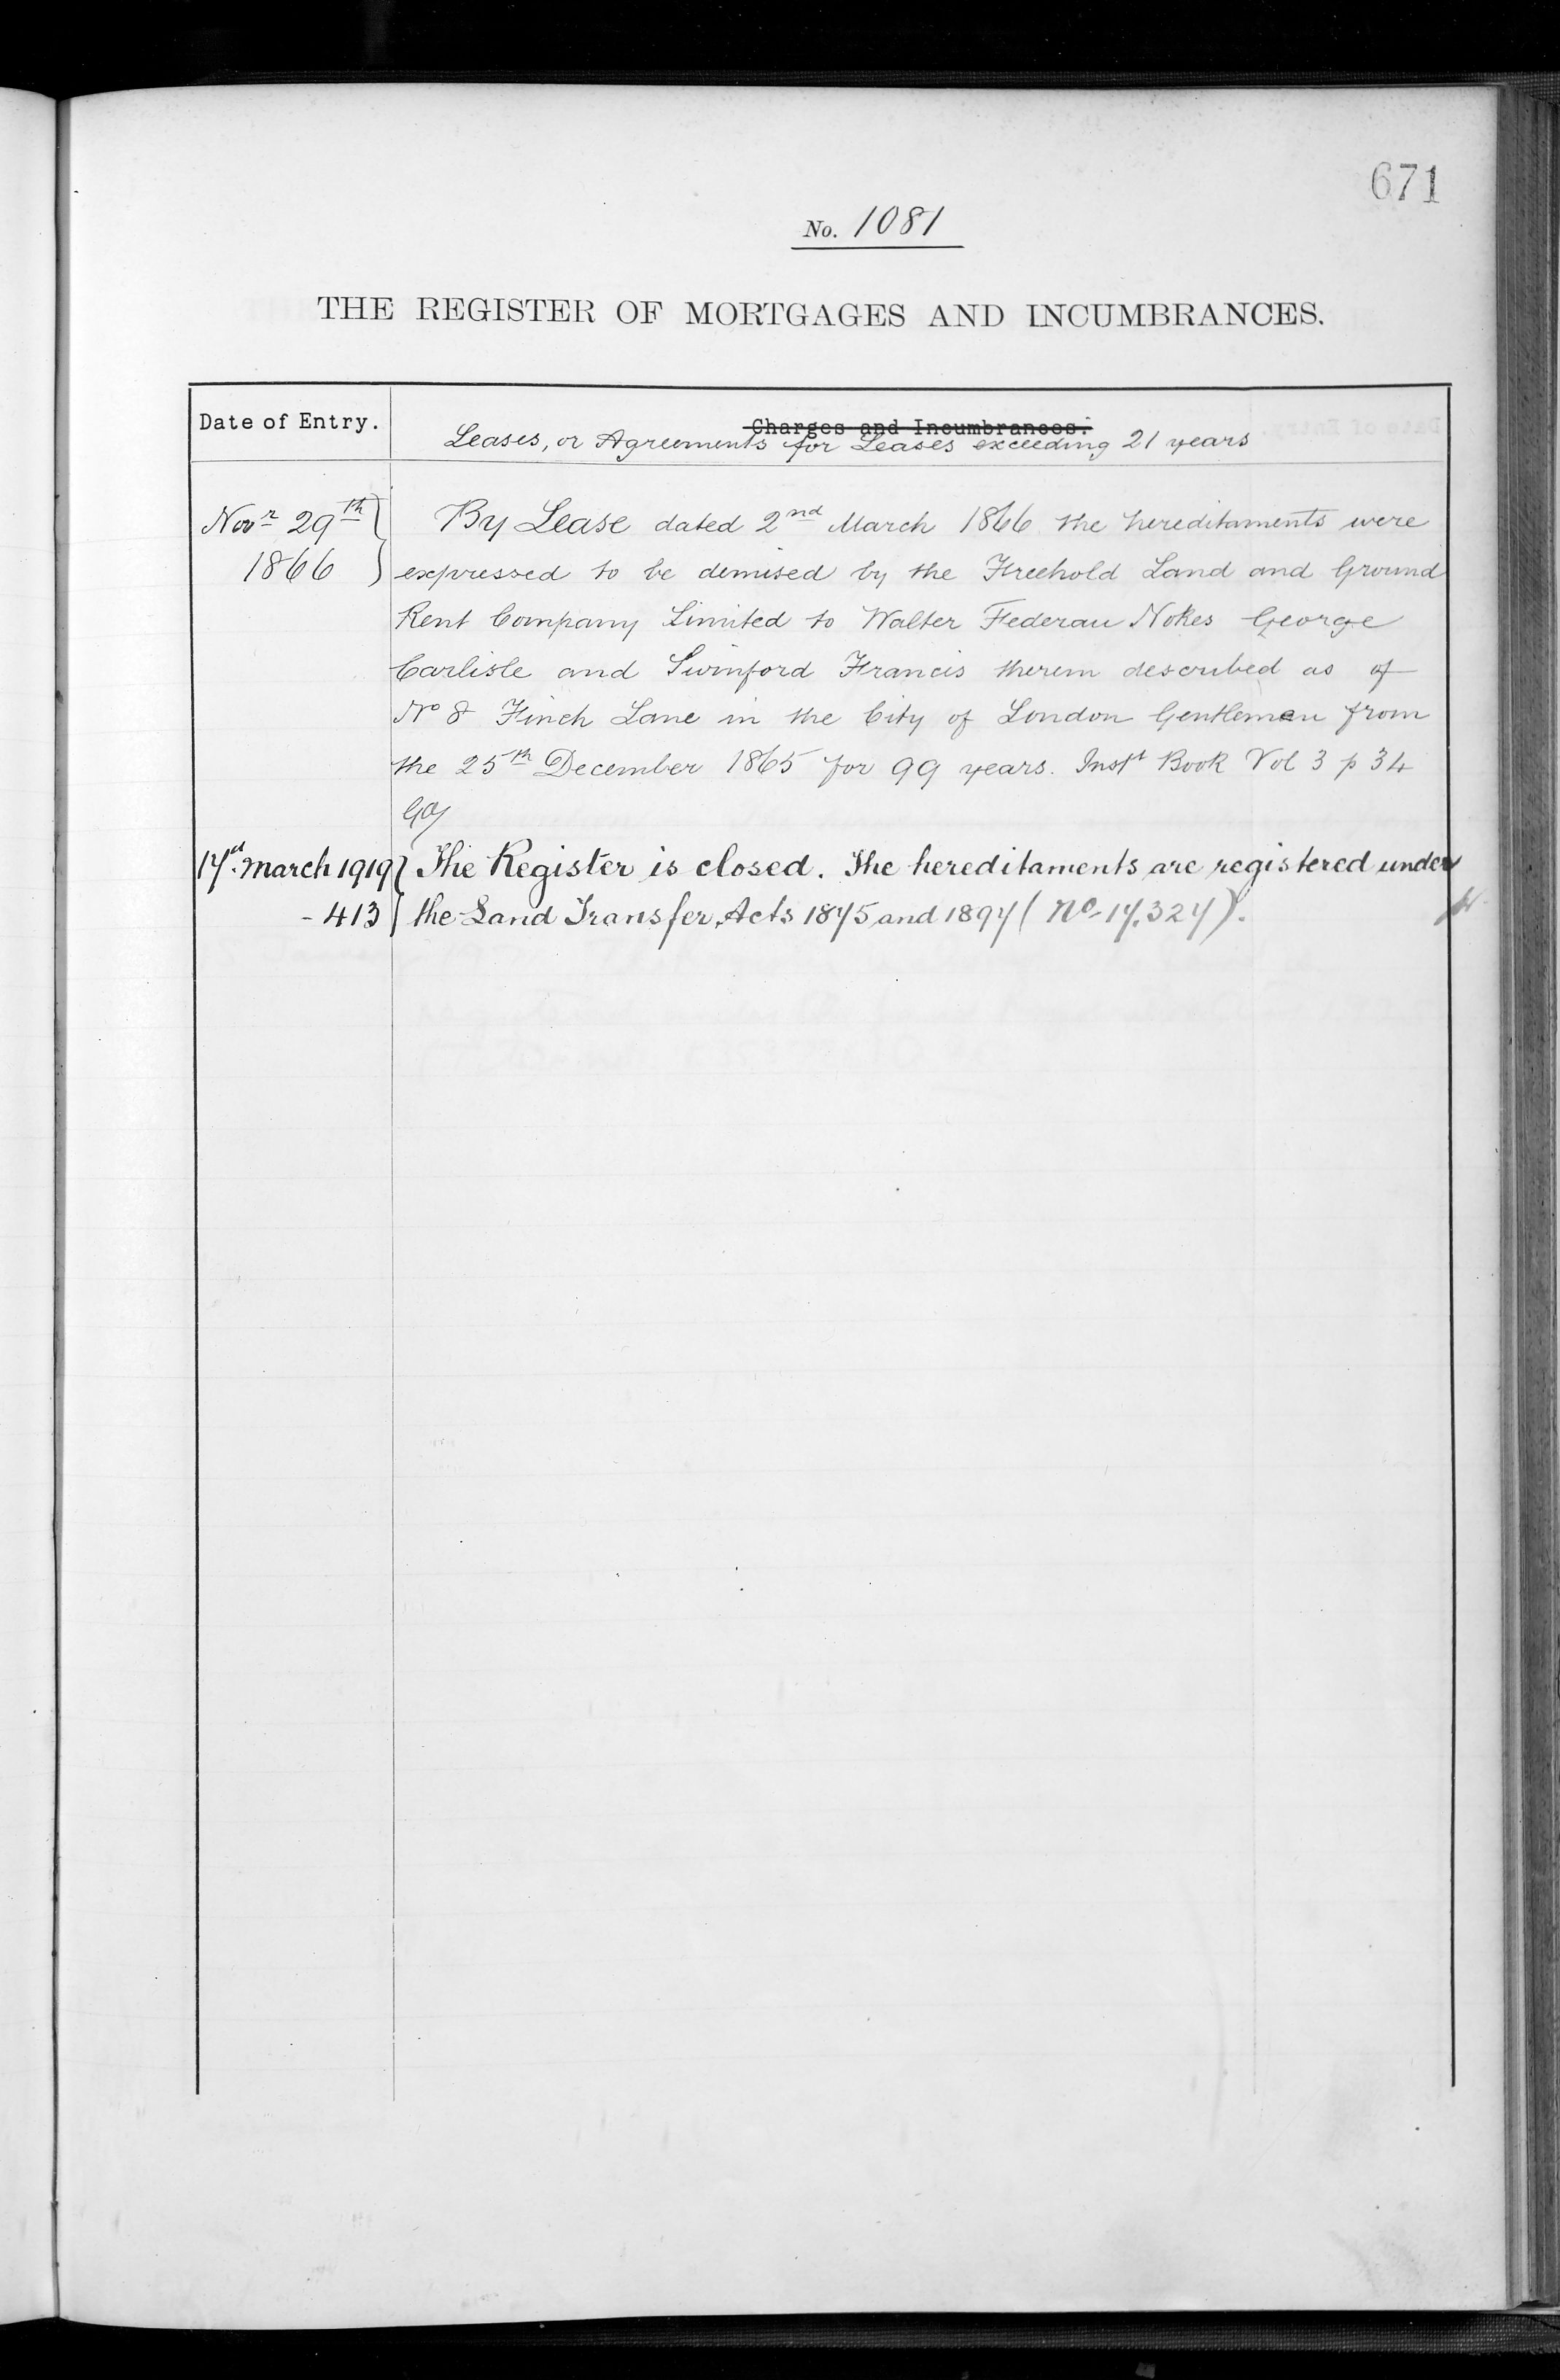 671
No. 1081
THE REGISTER OF MORTGAGES AND INCUMBRANCES.
Date of Entry.
Charges and Incumbrances.
Leases, or Agreements for Leases exceeding 21 years
Novr 29th
1866
By Lease dated 2nd March 1866 the hereditaments were
expressed to be demised by the Freehold Land and Ground
Rent Company Limited to Walter Federau Nokes George
Carlisle and Swinford Francis therein described as of
No 8 Finch Lane in the City of London Gentlemen from
the 25th December 1865 for 99 years. Inst Book Vol 3 p 34
17th March 1919
- 413
The Register is closed. The hereditaments are registered under
the Land Transfer Acts 1875 and 1897 (No 17.327).